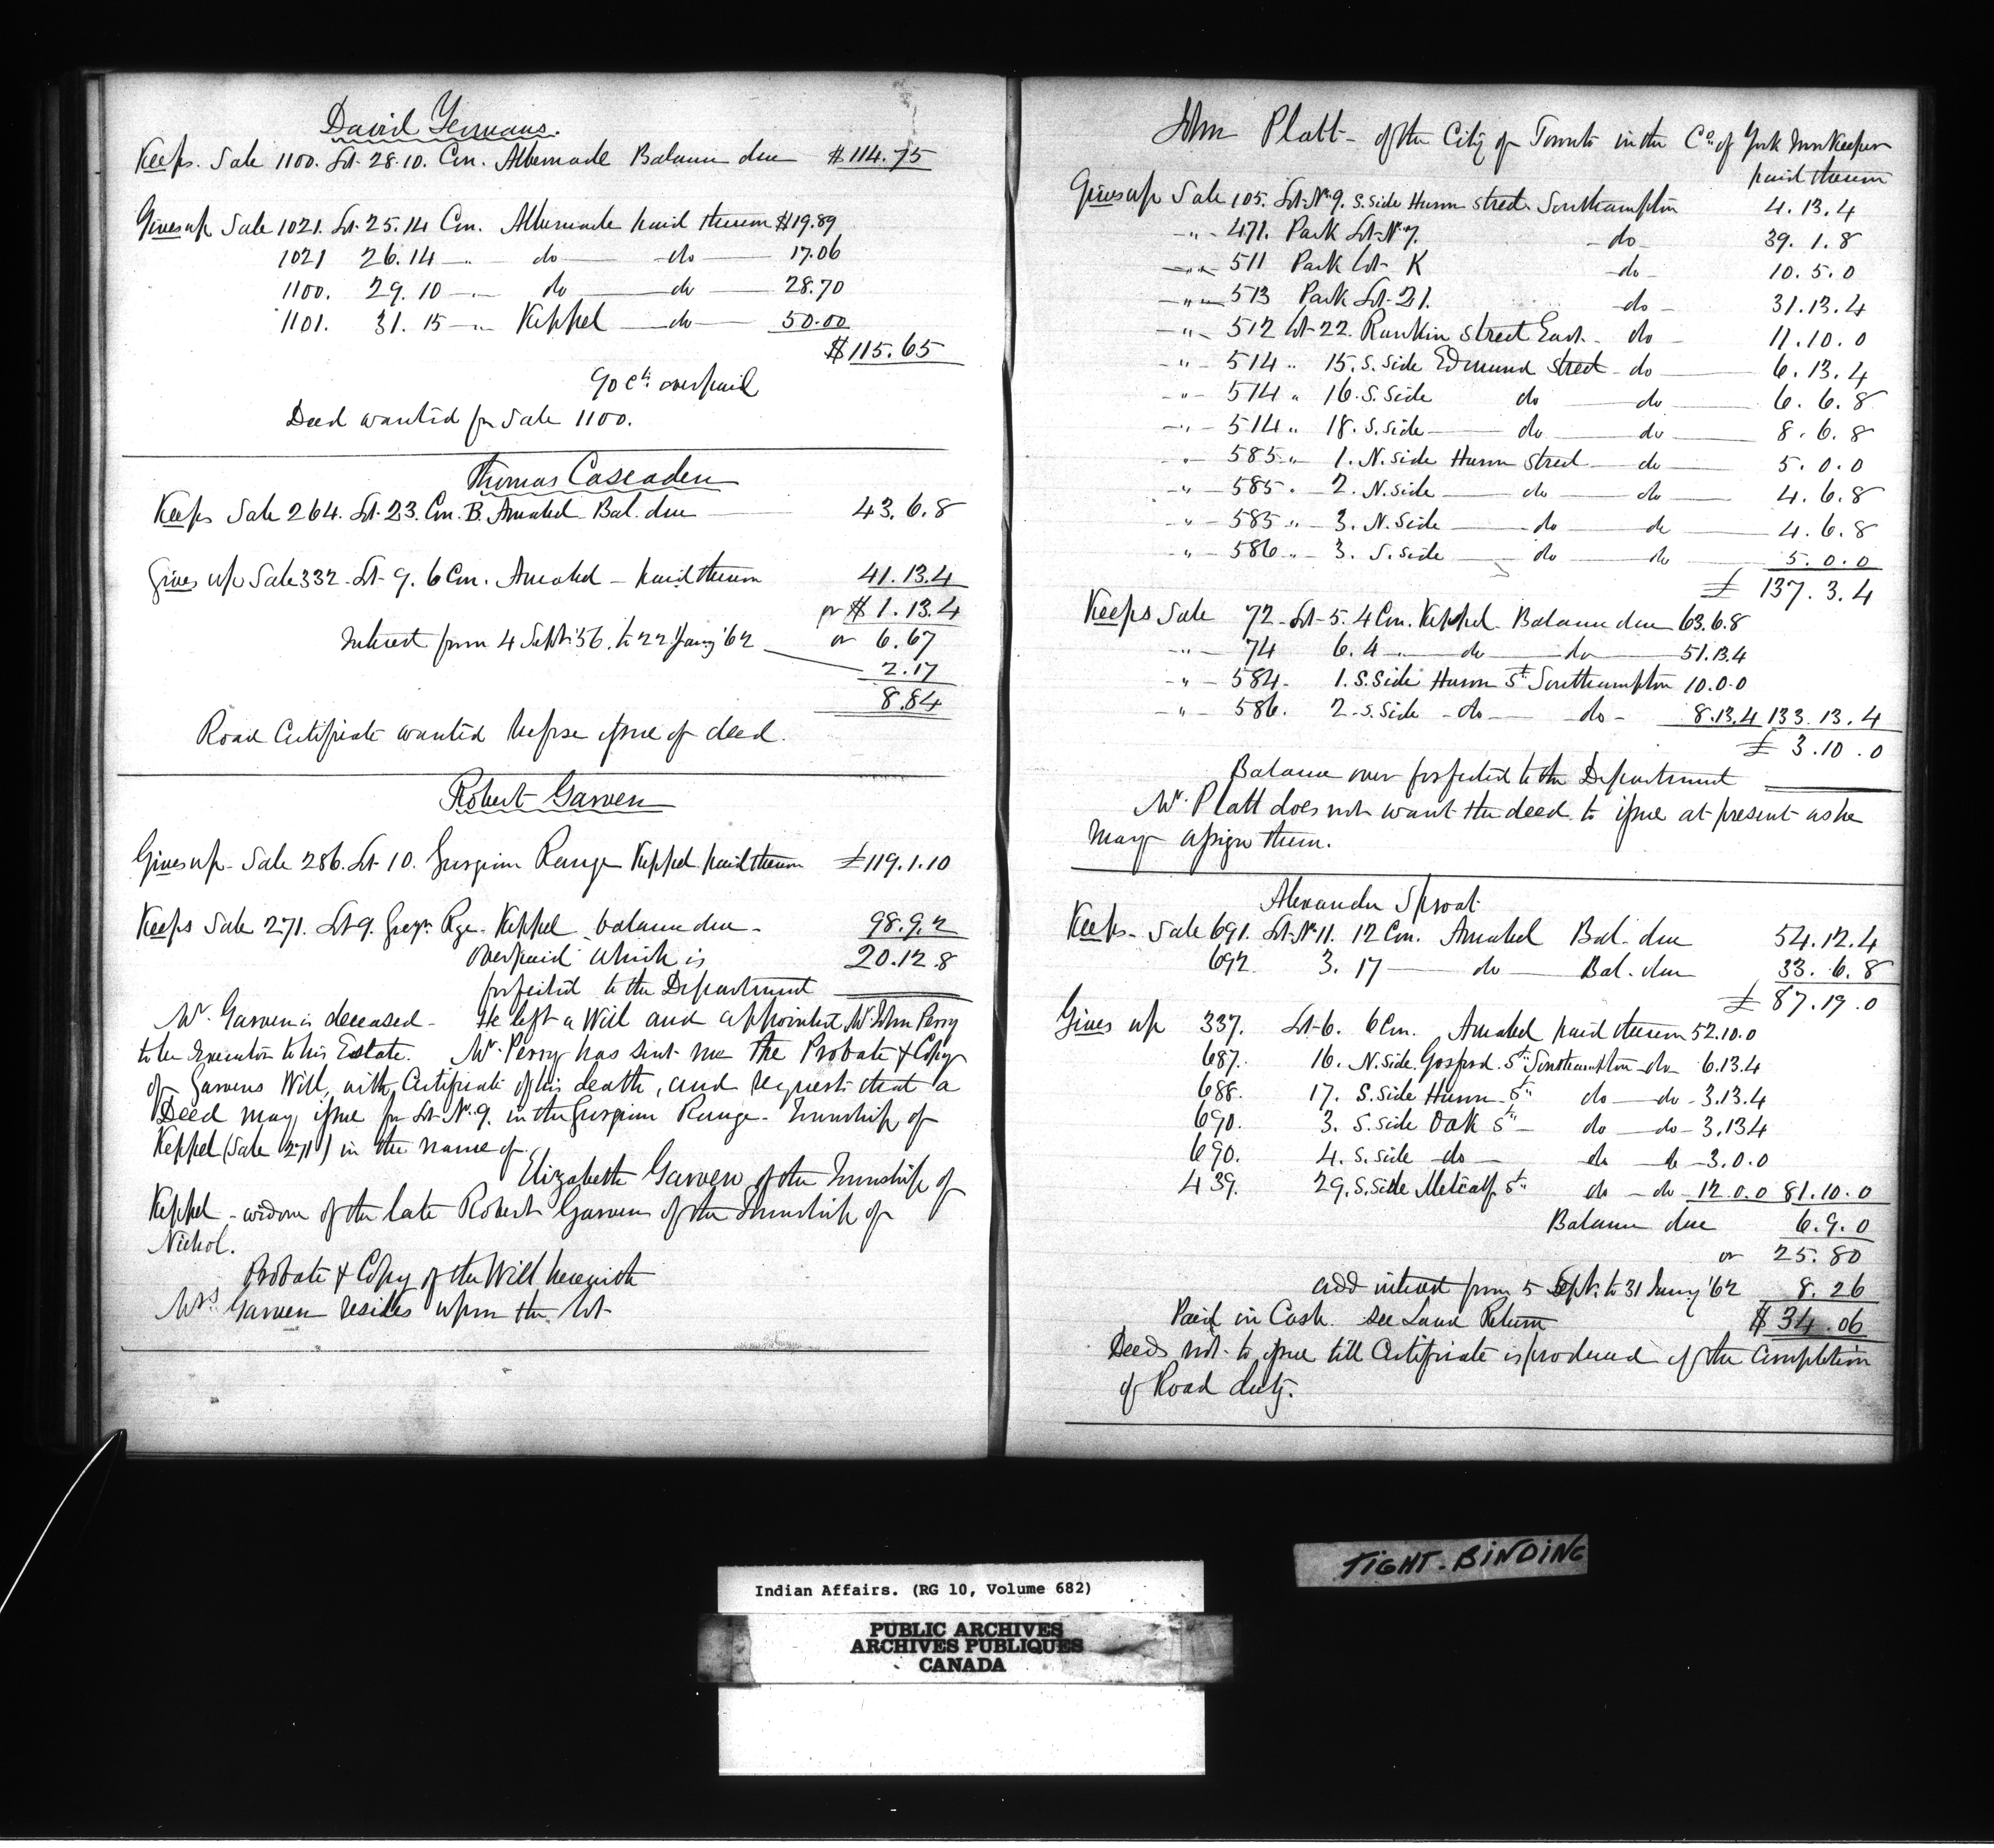 David Yemans.
Keeps. Sale 1100. Lot 28.10. Con. Albemarle Balance due $114.75
Gives up Sale 1021. Lot 25.14 Con. Albemarle paid thereon $19.89
1021 26.14 — " — do — do — 17.06
1100. 29.10 — " — do — do — 28.70
1101. 31.15 — " Keppel — do — 50.00
$115.65
90 cts. overpaid
Deed wanted for Sale 1100.
Thomas Cascaden
Keeps Sale 264. Lot 23. Con. B. Amabel Bal. due — 43.6.8
Gives up Sale 332. Lot 9. 6 Con. Amabel — paid thereon 41.13.4
or $ 1.13.4
Interest from 4 Sept. '56. to 22 Jany '62 or 6.67
2.17
8.84
Road Certificate wanted before issue of deed.
Robert Garven
Gives up Sale 286. Lot 10. Gurgion Range Keppel paid thereon £119.1.10
Keeps Sale 271. Lot 9. Rge. Keppel balance due — 98.9.2
overpaid which is 20.12.8
forfeited to the Department
Mr. Garven is deceased — He left a Will and appointed Mr. John Perry
to be Executor to his Estate. Mr. Perry has sent me the Probate & Copy
of Garvens Will, with Certificate of his death, and requests that a
Deed may issue for Lot No. 9. in the Gurgion Range — Township of
Keppel (Sale 271) in the name of
Elizabeth Garven of the Township of
Keppel — widow of the late Robert Garven of the Township of
Nichol.
Probate & Copy of the Will herewith
Mrs Garven resides upon the lot
John Platt — of the City of Toronto in the Co. of York Innkeeper
paid thereon
Gives up Sale 105. Lot No. 9. S. side Huron street Southampton 4.13.4
— " — 471. Park Lot No. 7. — do — 39.1.8
— " — 511 Park Lot K — do — 10.5.0
— " — 513 Park Lot 21. — do — 31.13.4
— " — 512 Lot 22. Rankin street East — do — 11.10.0
— " — 514 " 15. S. side Edmund street — do — 6.13.4
— " — 514 " 16. S. side do — do — 6.6.8
— " — 514 " 18. S. side — do — do — 8.6.8
" — 585 " 1. N. side Huron street — do — 5.0.0
— " — 585 " 2. N. side — do — do — 4.6.8
" — 585 " 3. N. side — do — do 4.6.8
" — 586 " 3. S. side — do — do 5.0.0
£ 137.3.4
Keeps Sale 72 Lot 5. 4 Con. Keppel Balance due 63.6.8
— " — 74 6.4 " do — do — 51.13.4
— " — 584. 1. S. side Huron St. Southampton 10.0.0
— " — 586. 2. S. side — do — do — 8.13.4 133.13.4
£ 3.10.0
Balance over forfeited to the Department
Mr. Platt does not want the deed to issue at present as he
may assign them.
Alexander Sproat
Keeps — Sale 691. Lot No. 11. 12 Con. Amabel Bal. due 54.12.4
692 3. 17 — do — Bal. due 33.6.8
£ 87.19.0
Gives up 337. Lot 6. 6 Con. Amabel paid thereon 52.10.0
687. 16. N. side Gosford St. Southampton — do 6.13.4
688. 17. S. side Huron St. do — do — 3.13.4
690. 3. S. side Oak St. do — do — 3.13.4
690. 4. S. side — do — do do — 3.0.0
439. 29. S. side Metcalf St. do — do — 12.0.0 81.10.0
Balance due 6.9.0
or 25.80
add interest from 5 Sept. to 31 Jany '62 8.26
Paid in Cash. see Land Return $ 34.06
Deeds not to issue till Certificate is produced of the completion
of Road duty.
TIGHT-BINDING
Indian Affairs. (RG 10, Volume 682)
PUBLIC ARCHIVES
ARCHIVES PUBLIQUES
CANADA